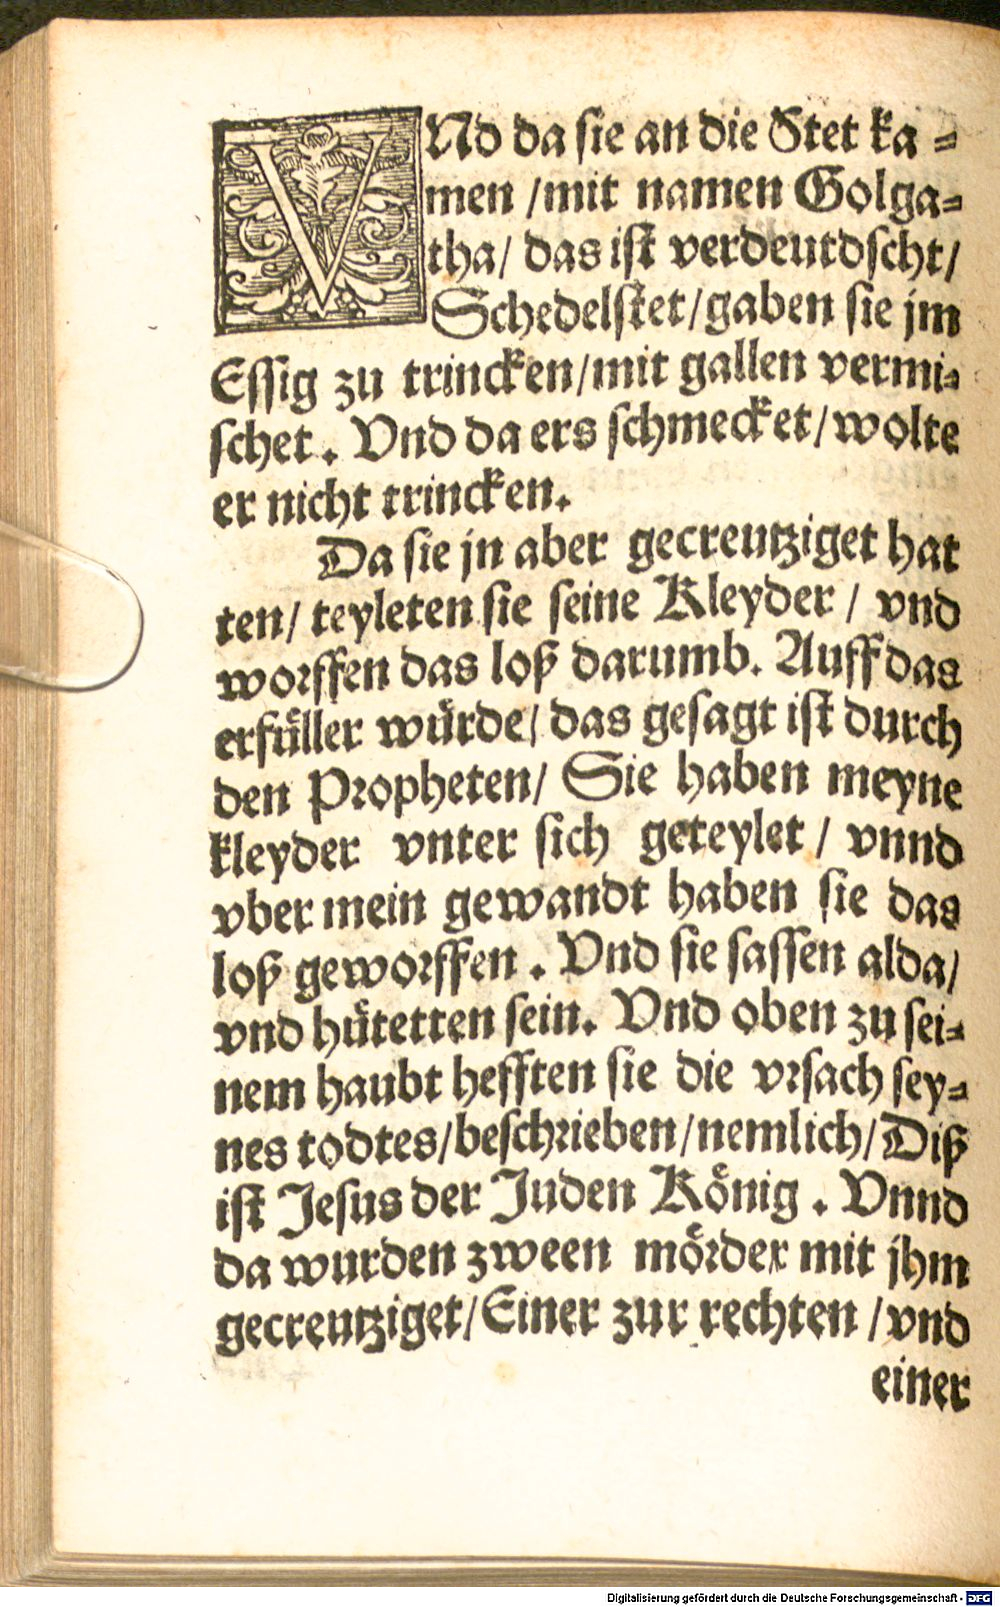 VNd da sie an die Stet ka =
men /mit namen Golga=
tha/ das ist verdeutdscht/
Schedelstet/gaben sie jm
Essig zu trincken/mit gallen vermi=
schet. Vnd da ers schmecket/wolte
er nicht trincken.
Da sie jn aber gecreutziget hat
ten/ teyleten sie seine Kleyder / vnd
worffen das loß darumb. Auff das
erfüller würde/ das gesagt ist durch
den Propheten/ Sie haben meyne
kleyder vnter sich geteylet / vnnd
vber mein gewandt haben sie das
loß geworffen . Vnd sie sassen alda/
vnd hütetten sein. Vnd oben zu sei=
nem haubt hefften sie die vrsach sey=
nes todtes/beschrieben/nemlich/Diß
ist Jesus der Juden König . Vnnd
da wurden zween mörder mit jhm
gecreutziget/Einer zur rechten /vnd
einer
Digitalisierung gefördert durch die Deutsche Forschungsgemeinschaft - DFG